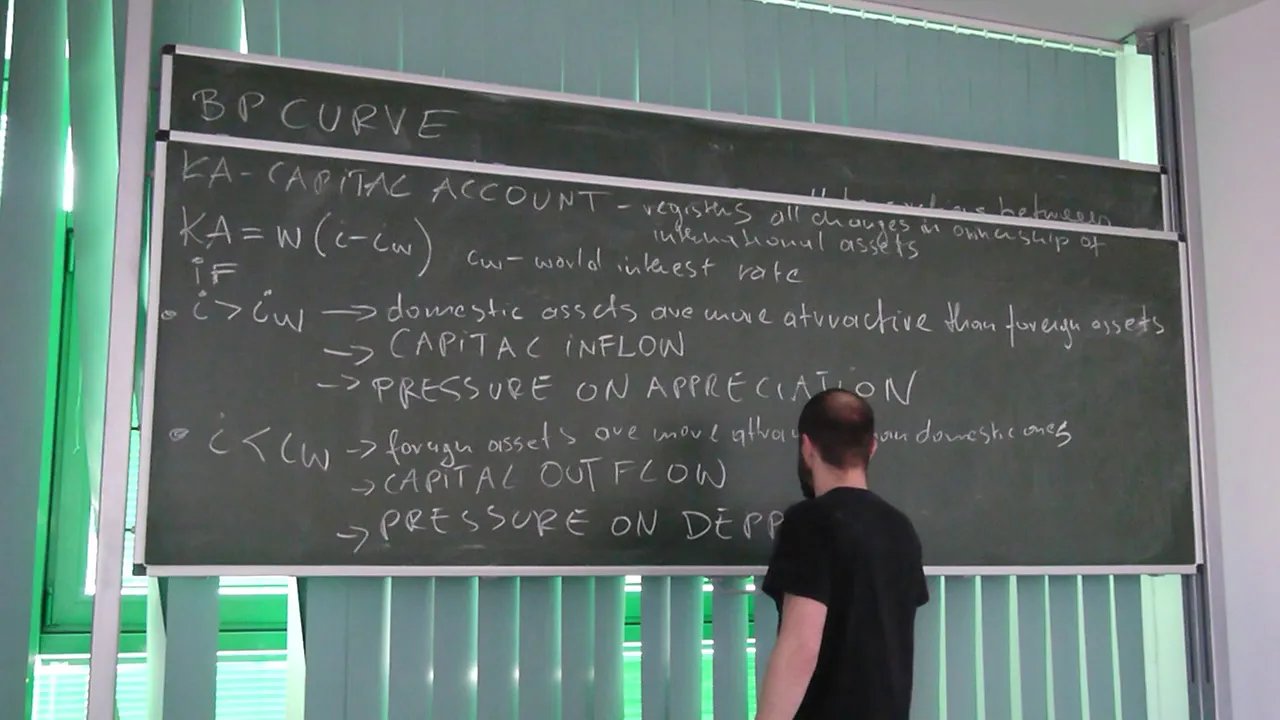 BP CURVE
between
KA - CAPITAL ACCOUNT - registers all changes in ownership of
international assets
KA = W (i - iw)
iw - world interest rate
iF
• i > iw → domestic assets are more atvractive than foreign assets
→ CAPITAL INFLOW
→ PRESSURE ON APPRECIATION
• i < iw → foreign assets are more domestic ones
→ CAPITAL OUTFLOW
→ PRESSURE ON DEPP